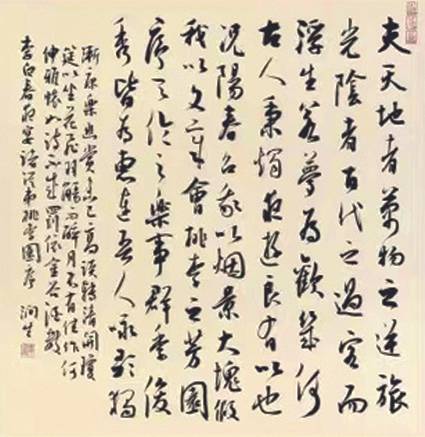 夫天地者萬物之逆旅
光陰者百代之過客而
浮生若夢為歡幾何
古人秉燭夜遊良有以也
況陽春召我以烟景大塊假
我以文章會桃李之芳園
序天倫之樂事群季俊
秀皆為惠連吾人咏歌獨
慚康樂幽賞未已高談轉清開瓊
筵以坐花飛羽觴而醉月不有佳作何
伸雅懷如詩不成罰依金谷酒數
李白春夜宴諸從弟桃李園序 润生